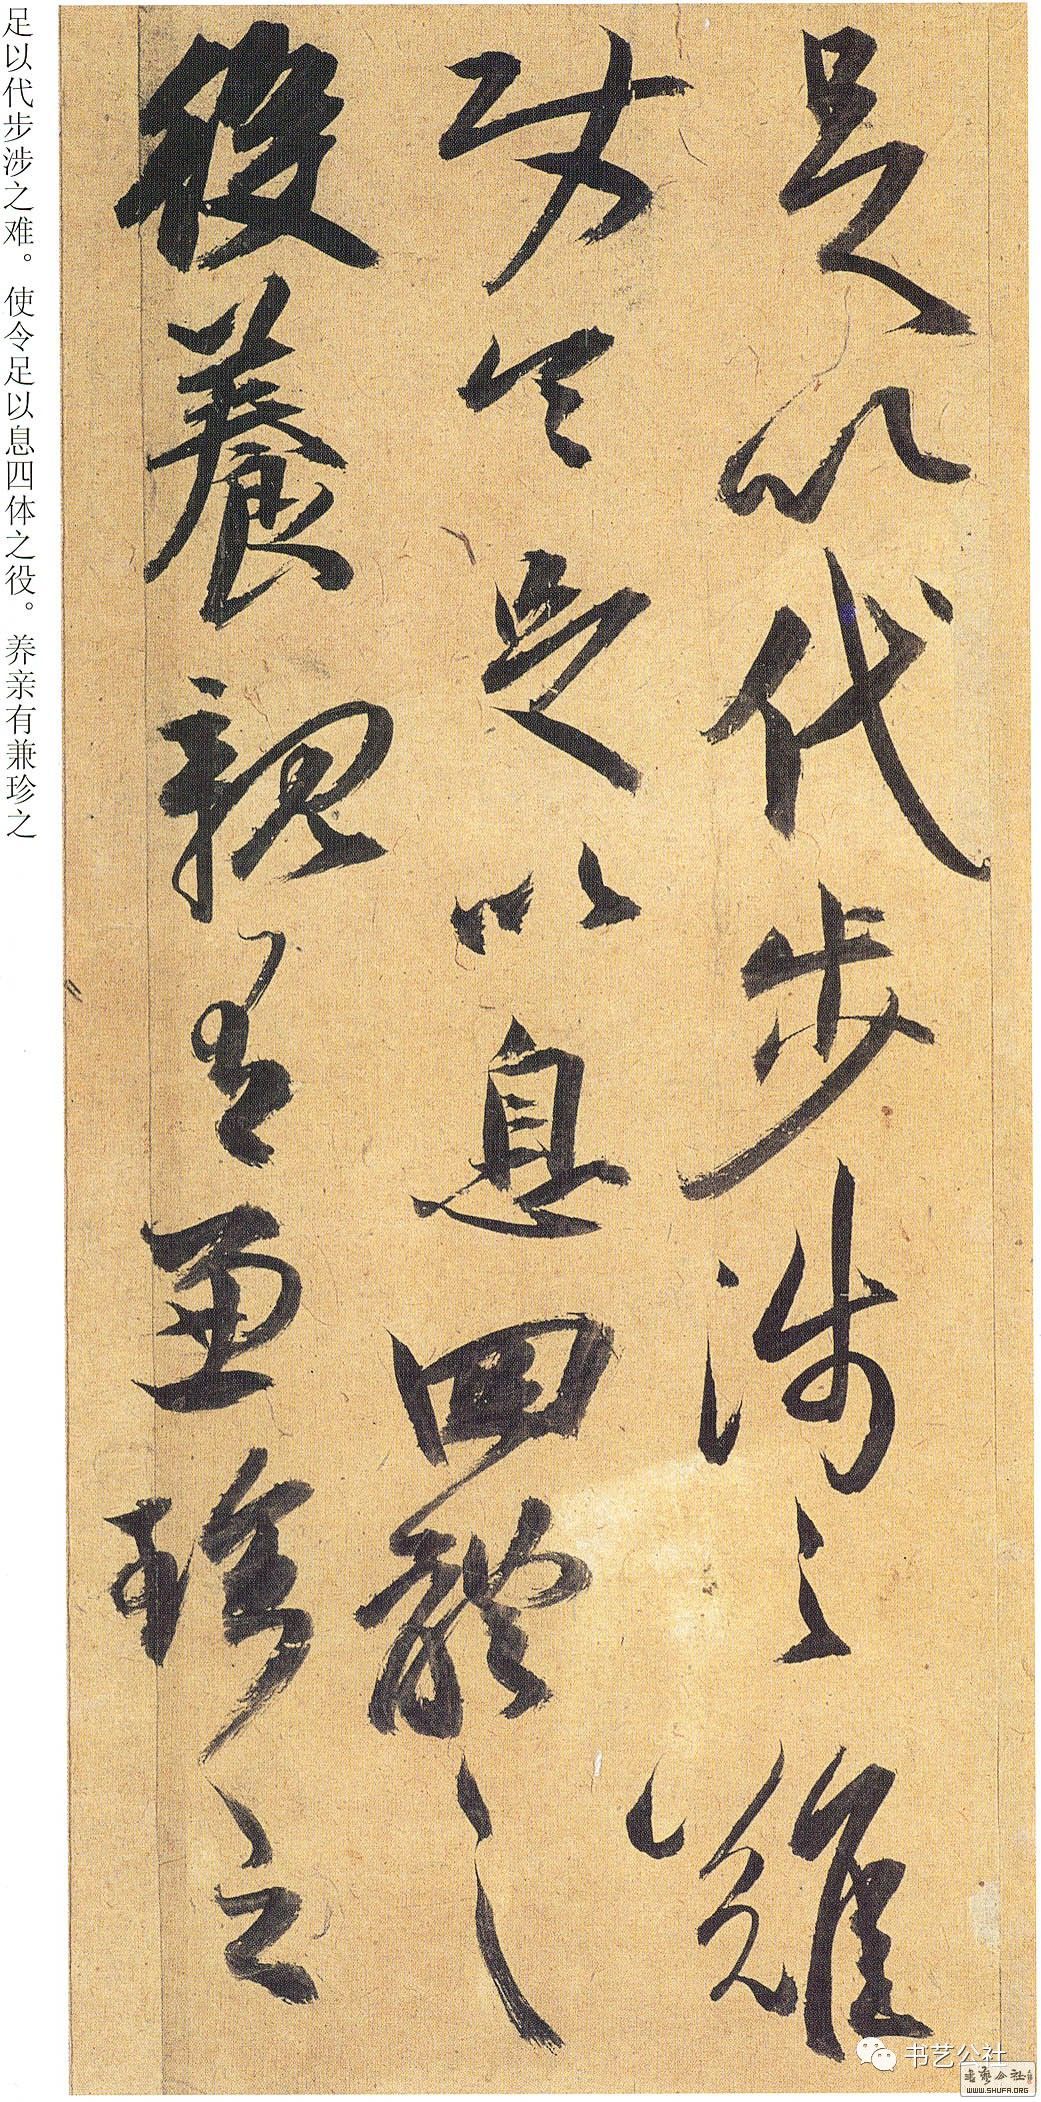 足以代步涉之難
使令足以息四體之
役養親有兼珍之
足以代步涉之难。使令足以息四体之役。养亲有兼珍之
书艺公社
书艺公社
WWW.SHUFA.ORG